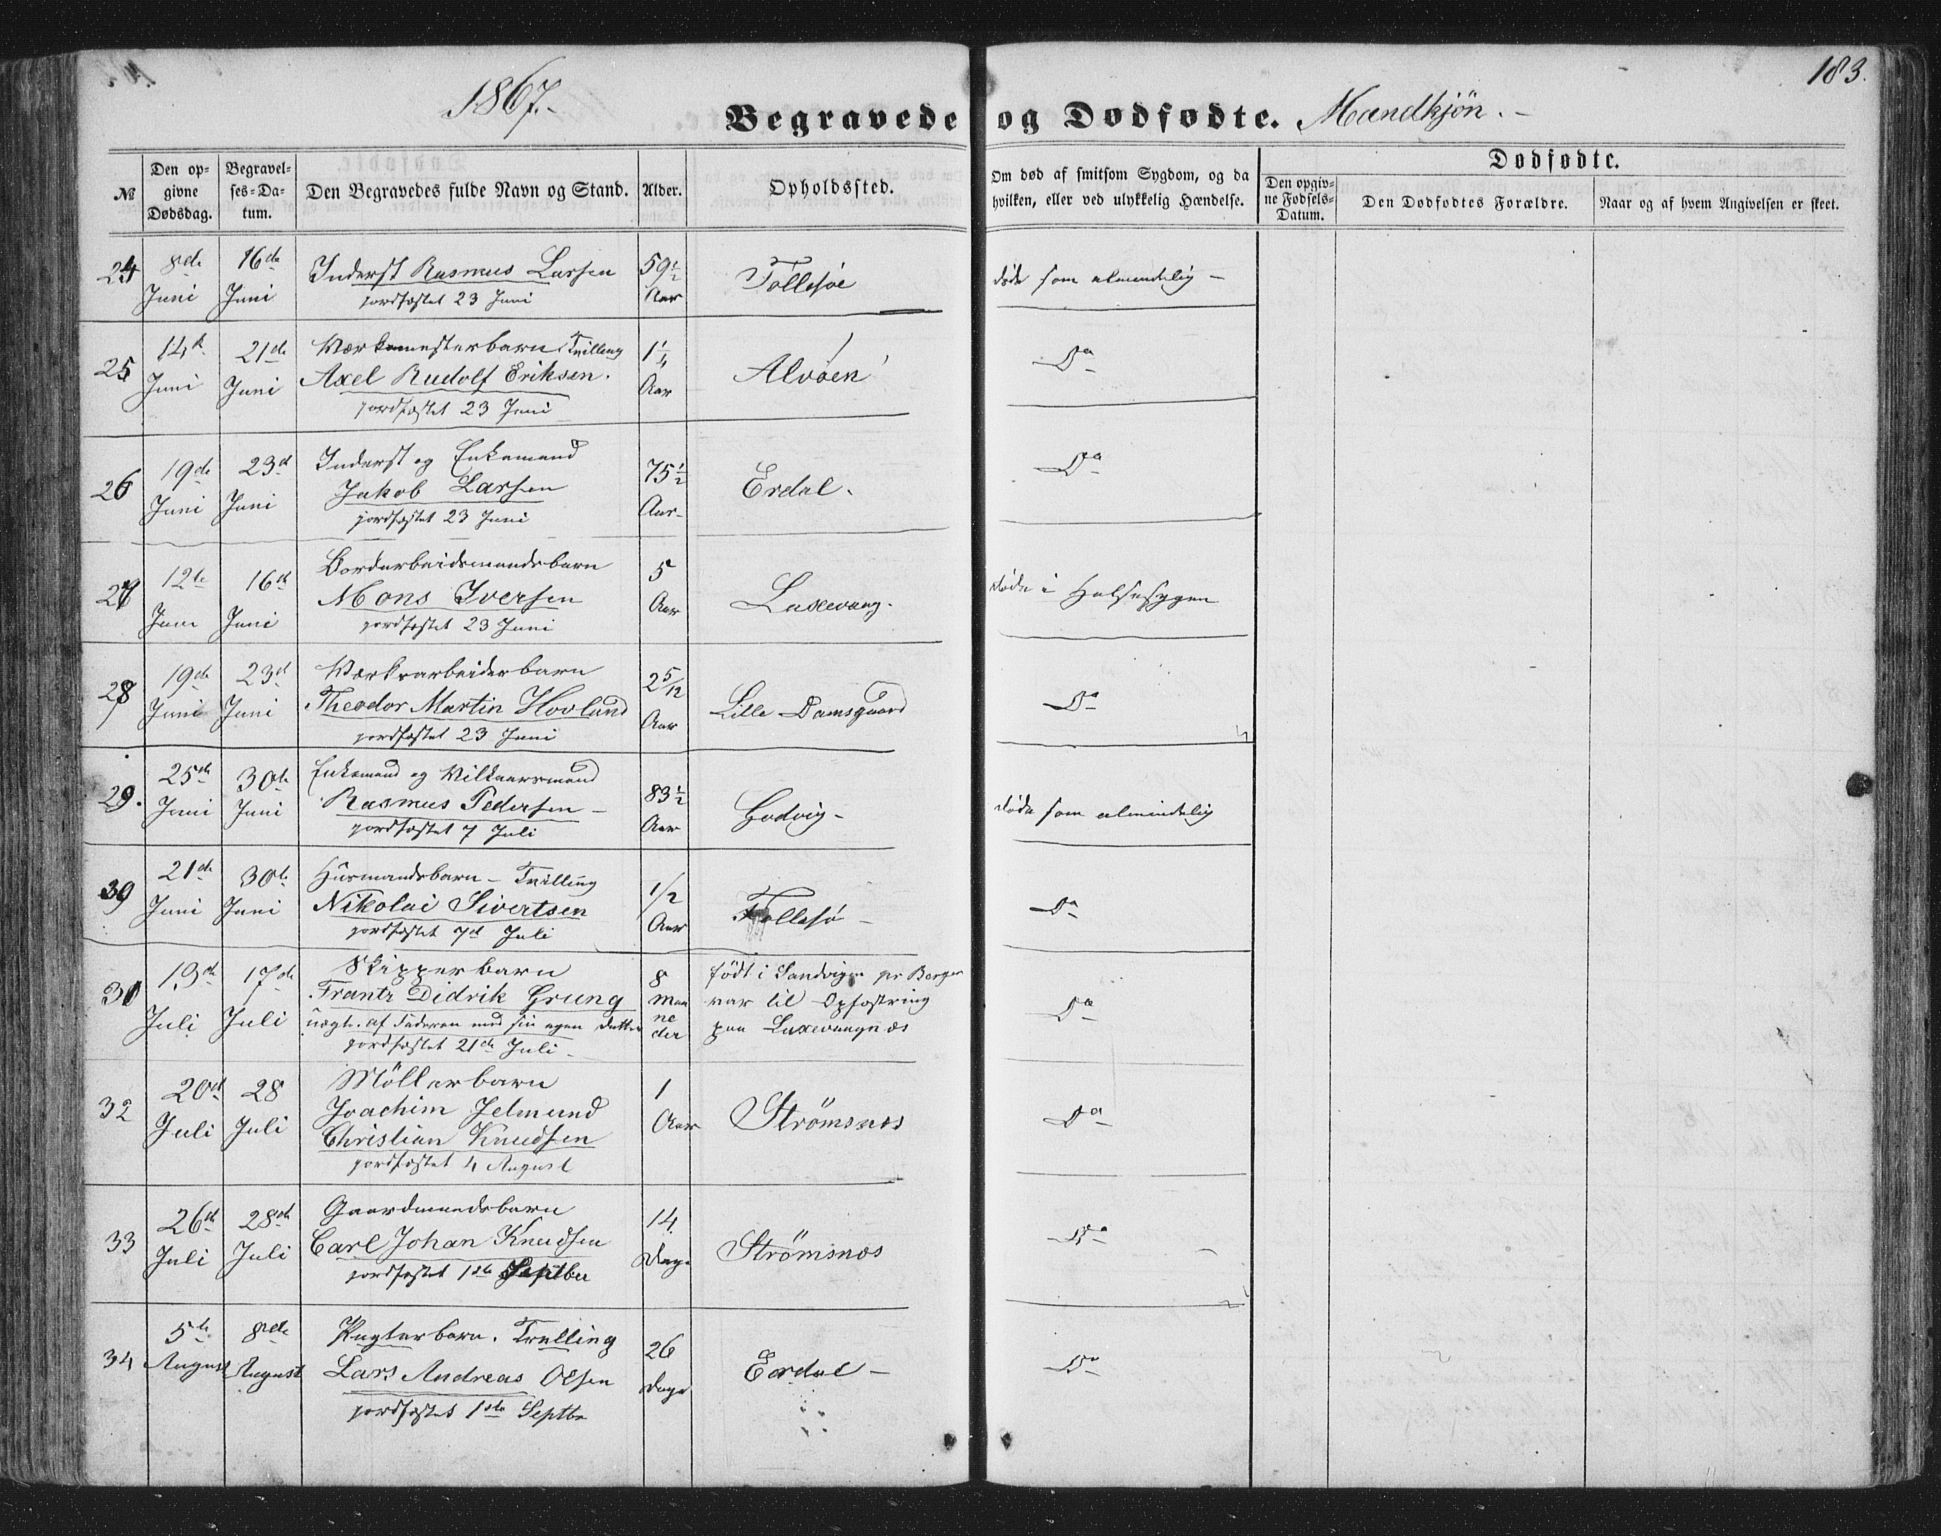 183.
1867.-
Begravede og Dødfødte. Mandkjøn. -
№
Den opgivne Dødsdag.
Begravelses-Datum.
Den Begravedes fulde Navn og Stand.
Alder.
Opholdssted.
Om død af smitsom Sygdom, og da
hvilken, eller ved ulykkelig Hændelse.
Dødfødte.
Den opgivne Fødsels-Datum.
Den Dødfødtes Forældre.
Naar og af hvem Angivelsen er skeet.
24 8de Juni 16de Juni Inderst Rasmus Larsen 59½ Aar Follesøe døde som almindelig -
jordfæstet 23 Juni
25 14d Juni 21de Juni Værkmesterbarn Tvilling 1¼ Aar Alvøen Do
Axel Rudolf Eriksen.
jordfæstet 23 Juni
26 19de Juni 23d Juni Inderst og Enkemand 75½ Aar- Erdal. Do
Jakob Larsen
jordfæstet 23 Juni
27 12te Juni 16de Juni Bordarbeidsmandsbarn 5 Aar Laxevaag. døde i Halssygen
Mons Iversen
jordfæstet 23 Juni
28 19de Juni 23d Juni Værksarbeiderbarn 2 5/12 Aar Lille Damsgaard Do
Theodor Martin Hovland
jordfæstet 23 Juni
29. 25de Juni 30te Juni Enkemand og Vilkaarsmand 83½ Aar Godvig - døde som almindelig
Rasmus Pedersen -
jordfæstet 7 Juli
30 21de Juni 30te Juni Huusmandsbarn - Tvilling 1/2 Aar Follesø - Do
Nikolai Sivertsen
jordfæstet 7d Juli
31 13de Juli 17de Juli Skipperbarn 8 Maaneder født i Sandvigen pr Bergen Do
Frantz Didrik Grung var til Opfostring
uægte. af Faderen med sin egen Datter paa Laxevaagnæs
jordfæstet 21de Juli -
32 20d Juli 28 Juli Möllerbarn 1 Aar Strømsnæs Do
Joachim Jelmund
Christian Knudsen
jordfæstet 4 August
33 26de Juli 28de Juli Gaardmandsbarn 14. Dage Strømsnæs Do
Carl Johan Knudsen
jordfæstet 1ste Septber
34 5te August 8de August Pagterbarn. Trilling 26 Dage Erdal - Do
Lars Andreas Olsen
jordfæstet 1ste Septbr